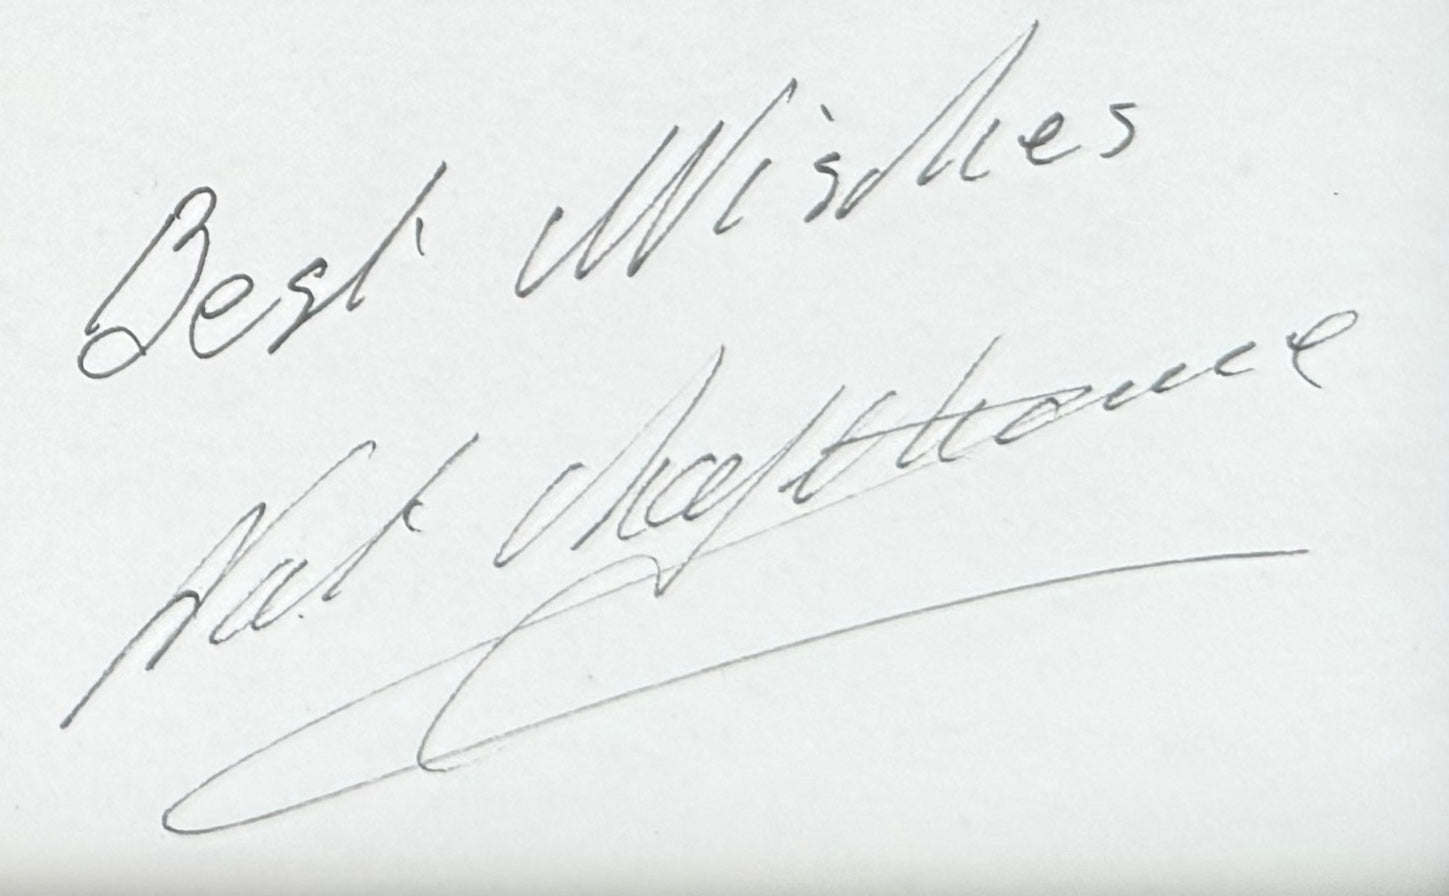 Best Wishes
Nat Lofthouse